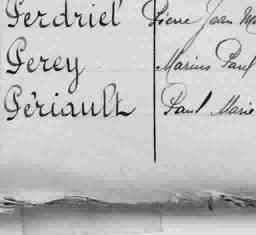 Perdriel Pierre Jean M
Perey Marius Paul
Périault Paul Marie